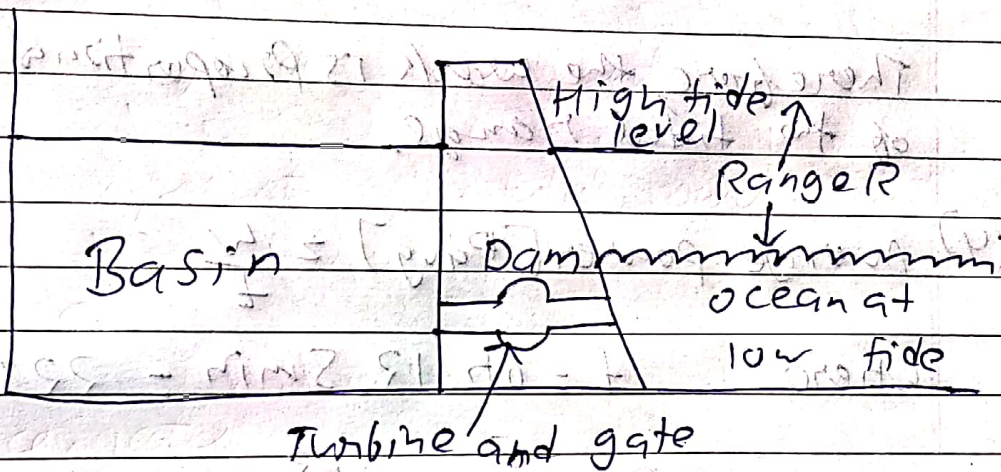 High tide
level
Range R
Basin
Dam
ocean at
low tide
Turbine and gate